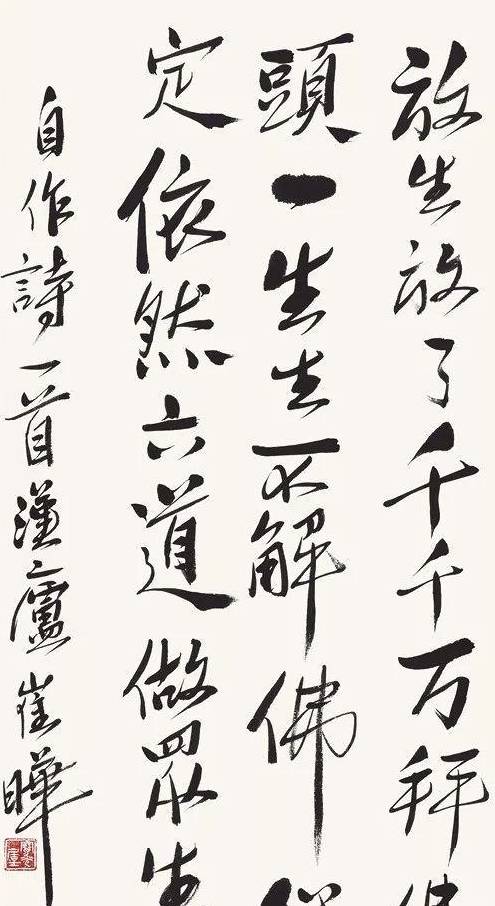 放生放了千千万拜
頭一生生不解佛
定依然六道做眾生
自作詩一首漢廬崔曄